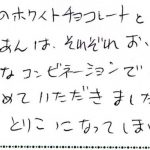 のホワイトチョコレートと
あんは、それぞれお い
なコンビネーションで
めていただきました
とりこになってしま